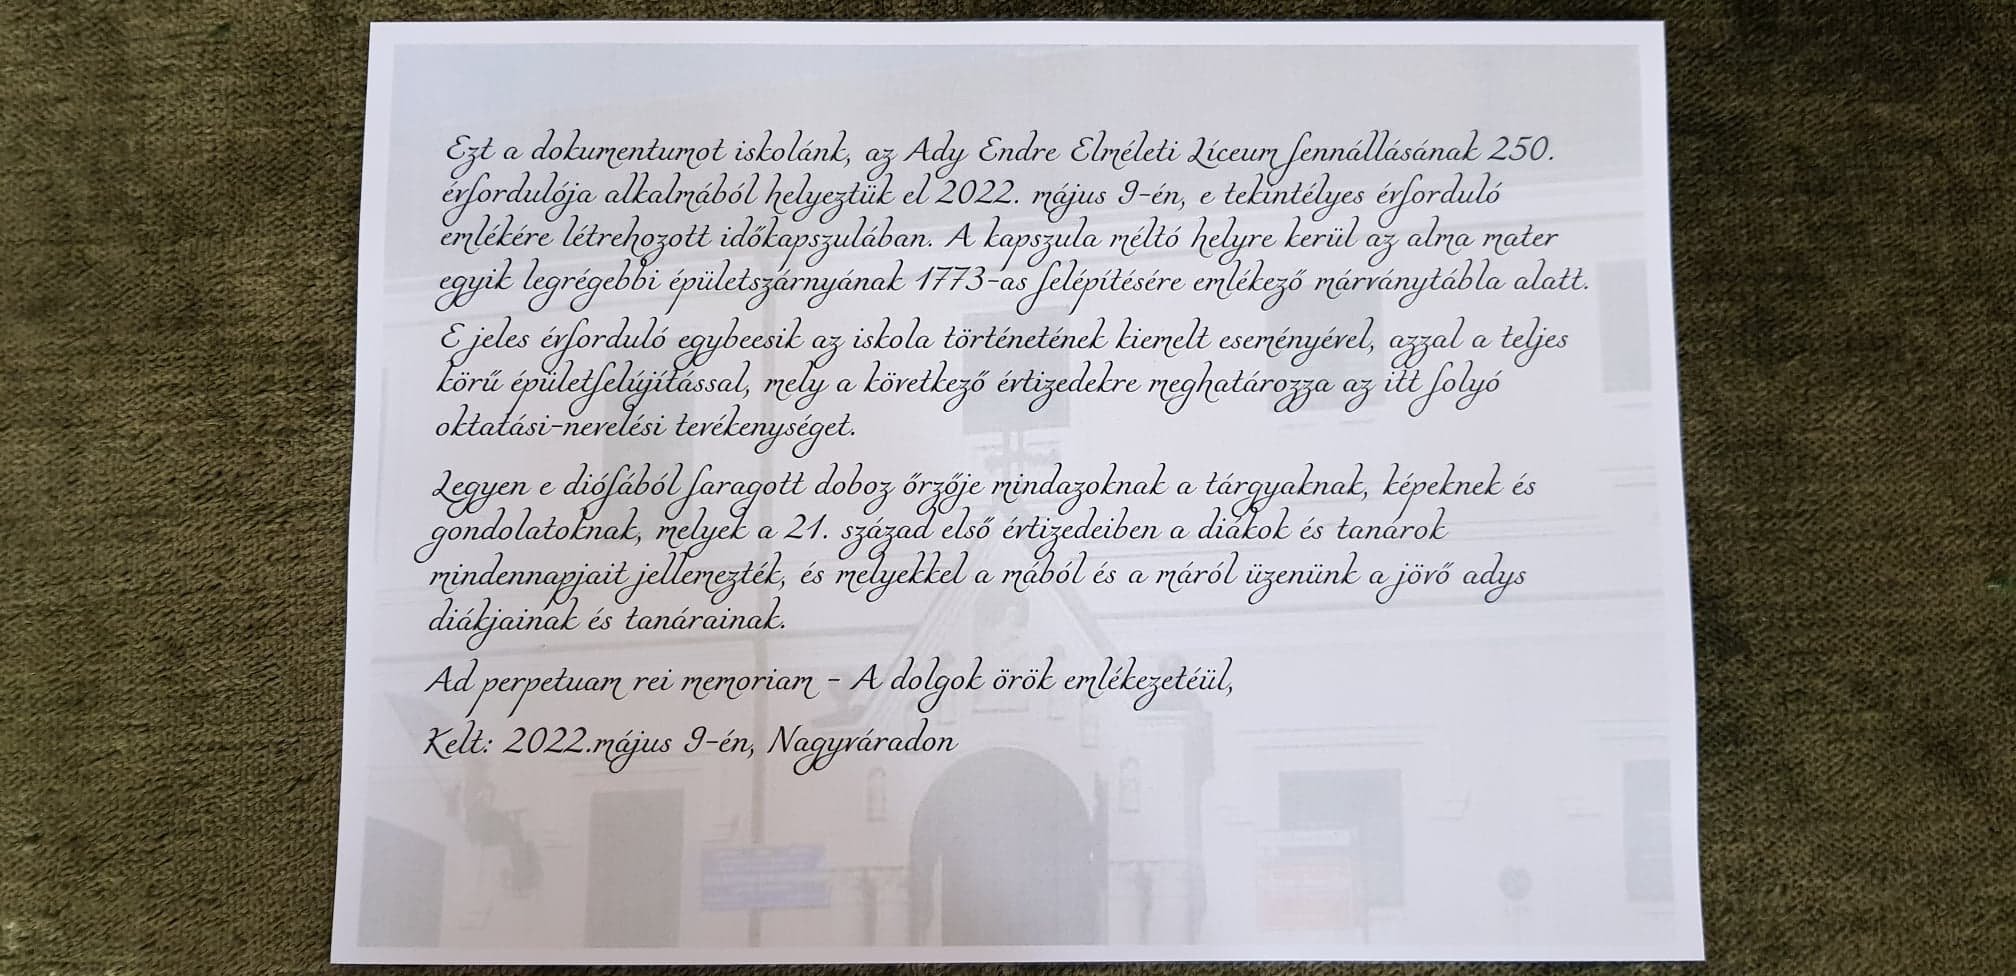 Ezt a dokumentumot iskolánk, az Ady Endre Elméleti Líceum fennállásának 250.
évfordulója alkalmából helyeztük el 2022. május 9-én, e tekintélyes évforduló
emlékére létrehozott időkapszulában. A kapszula méltó helyre kerül az alma mater
egyik legrégebbi épületszárnyának 1773-as felépítésére emlékező márványtábla alatt.
E jeles évforduló egybeesik az iskola történetének kiemelt eseményével, azzal a teljes
körű épületfelújítással, mely a következő évtizedekre meghatározza az itt folyó
oktatási-nevelési tevékenységet.
Legyen e diófából faragott doboz őrzője mindazoknak a tárgyaknak, képeknek és
gondolatoknak, melyek a 21. század első évtizedeiben a diákok és tanárok
mindennapjait jellemezték, és melyekkel a mából és a máról üzenünk a jövő adys
diákjainak és tanárainak.
Ad perpetuam rei memoriam - A dolgok örök emlékezetéül,
Kelt: 2022.május 9-én, Nagyváradon